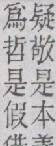 疑敬是本
爲哲是假